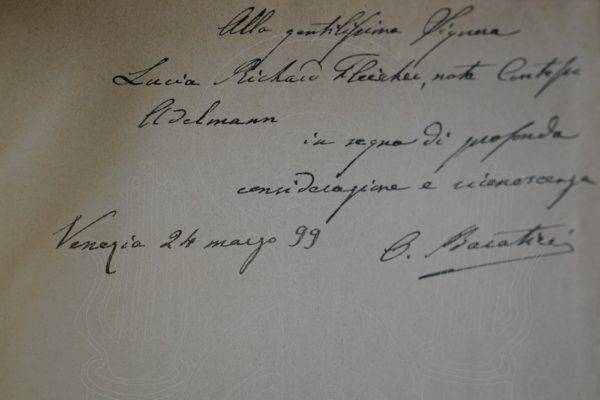 Alla gentilissima Signora
Lucia Richard Fleischer, nata Contessa
Adelmann
in segno di profonda
considerazione e riconoscenza
Venezia 24 marzo 99 O. Baratieri